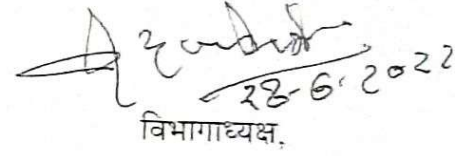 28-6-2022
विभागाध्यक्ष,